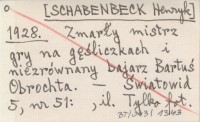 o [SCHABENBECK Henryk]
1928. Zmarły mistrz
gry na gęśliczkach i
niezrównany bajarz Bartuś
Obrochta. — Światowid
5, nr 51: , il. Tylko fot.